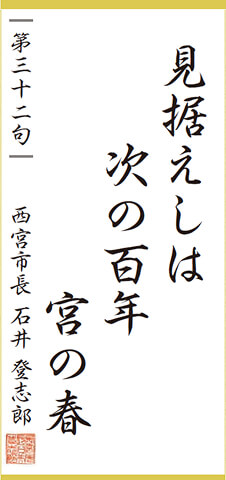 見据えしは
次の百年
宮の春
第三十二句
西宮市長 石井 登志郎